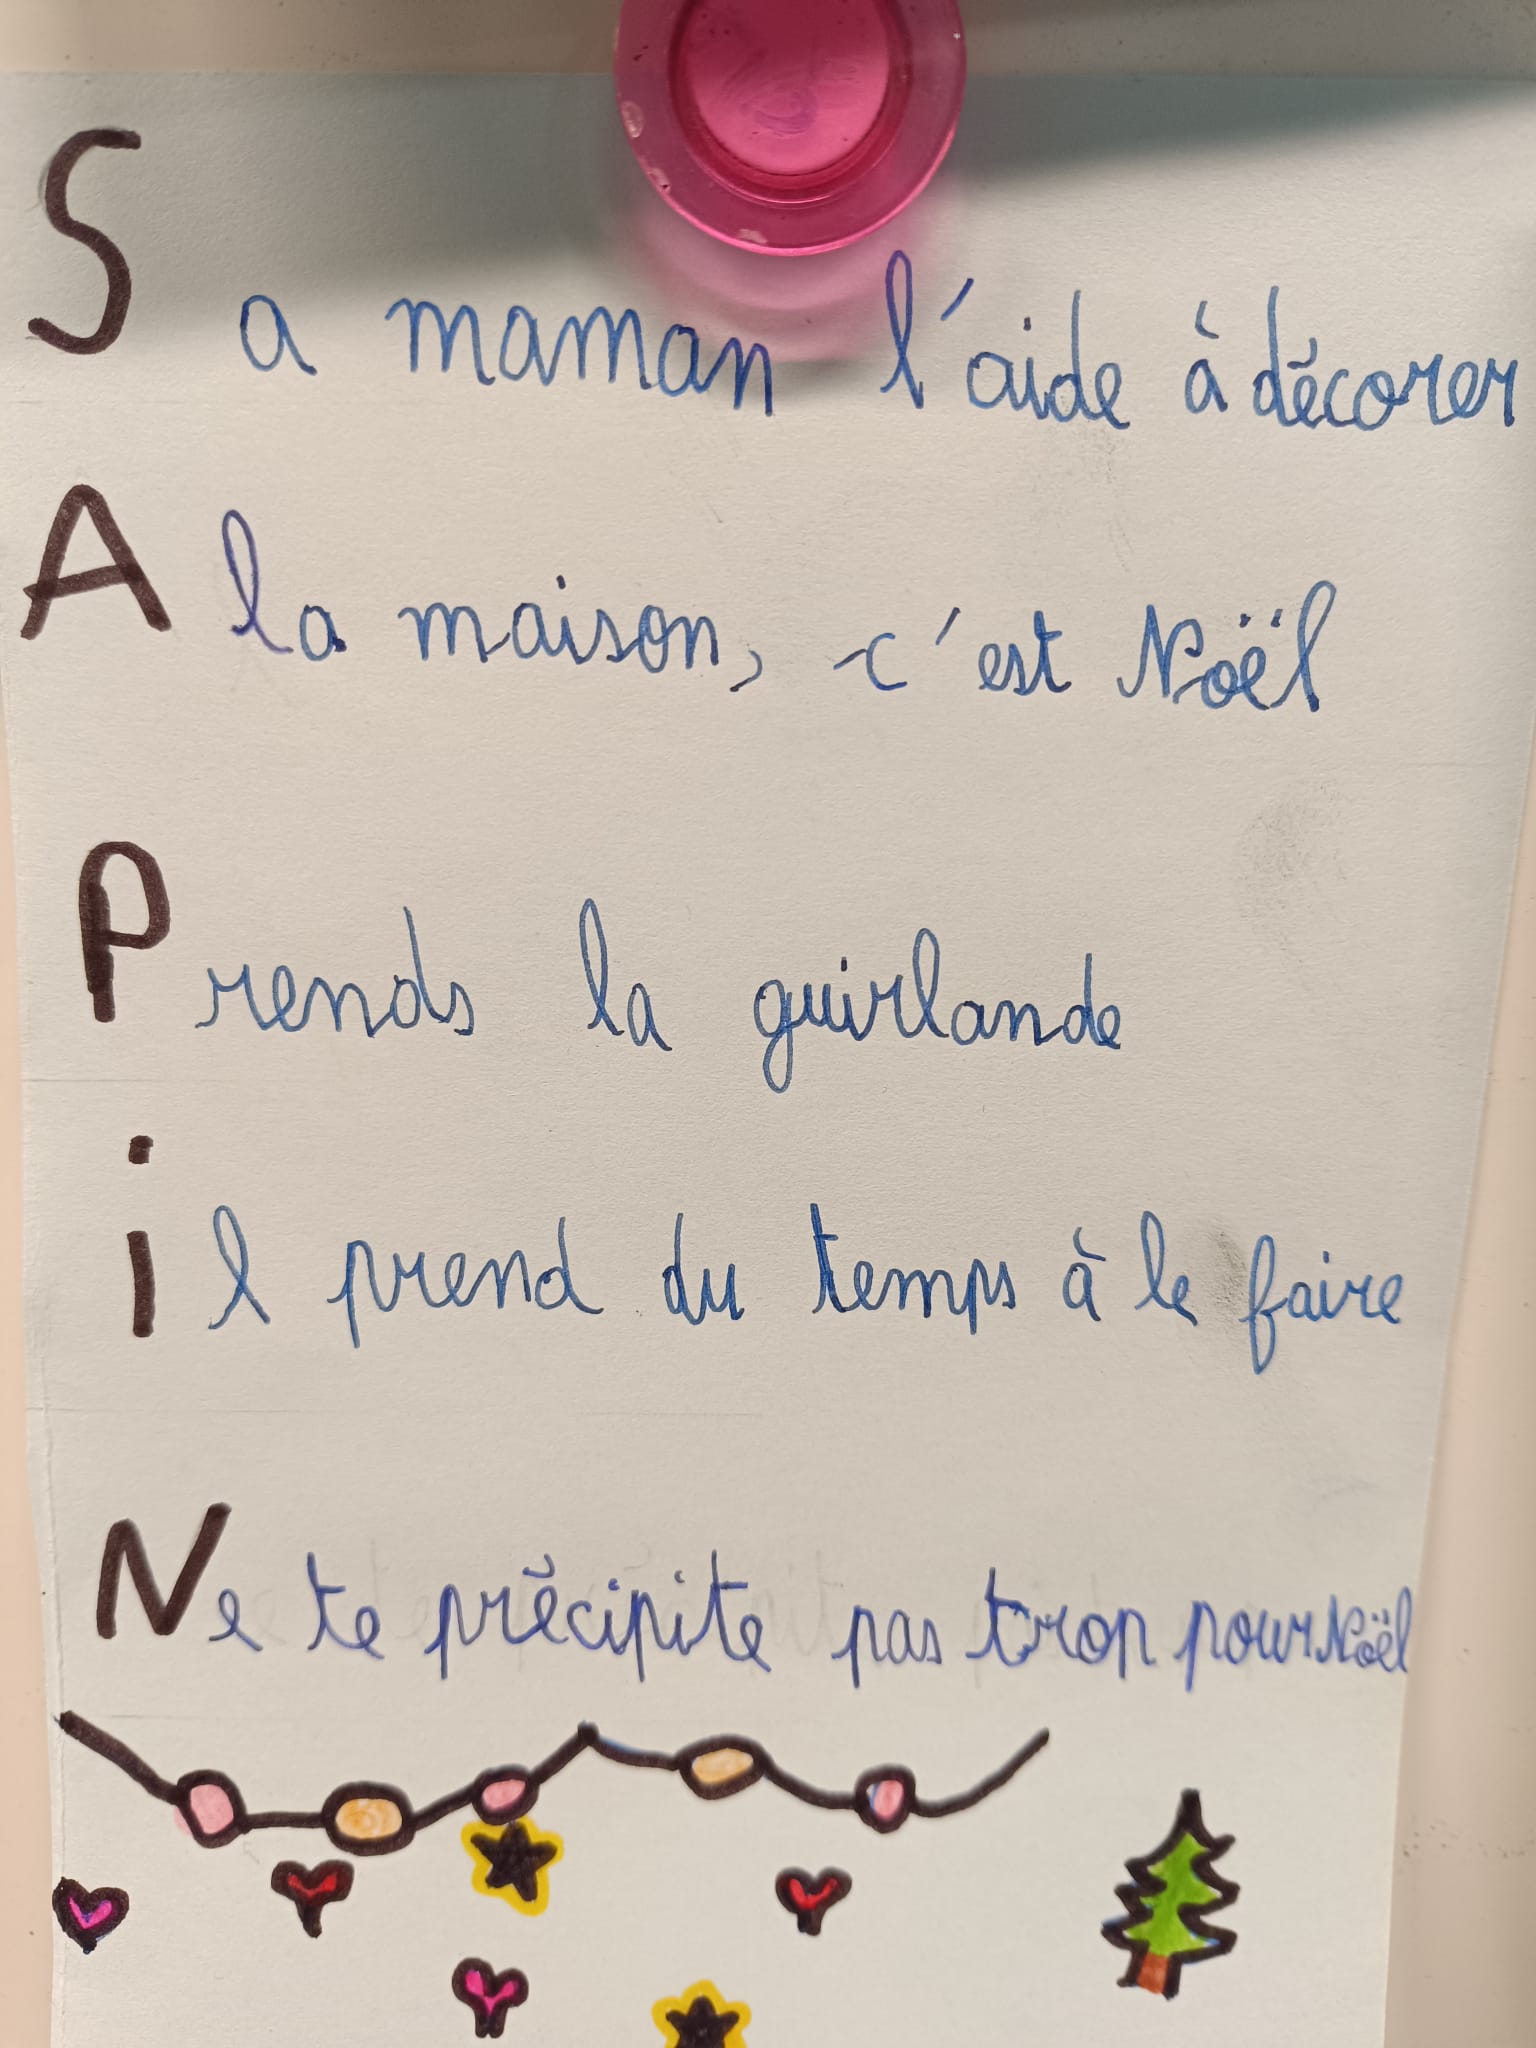 Sa maman l'aide à décorer
A la maison, c'est Noël
Prends la guirlande
il prend du temps à le faire
Ne te précipite pas trop pour Noël